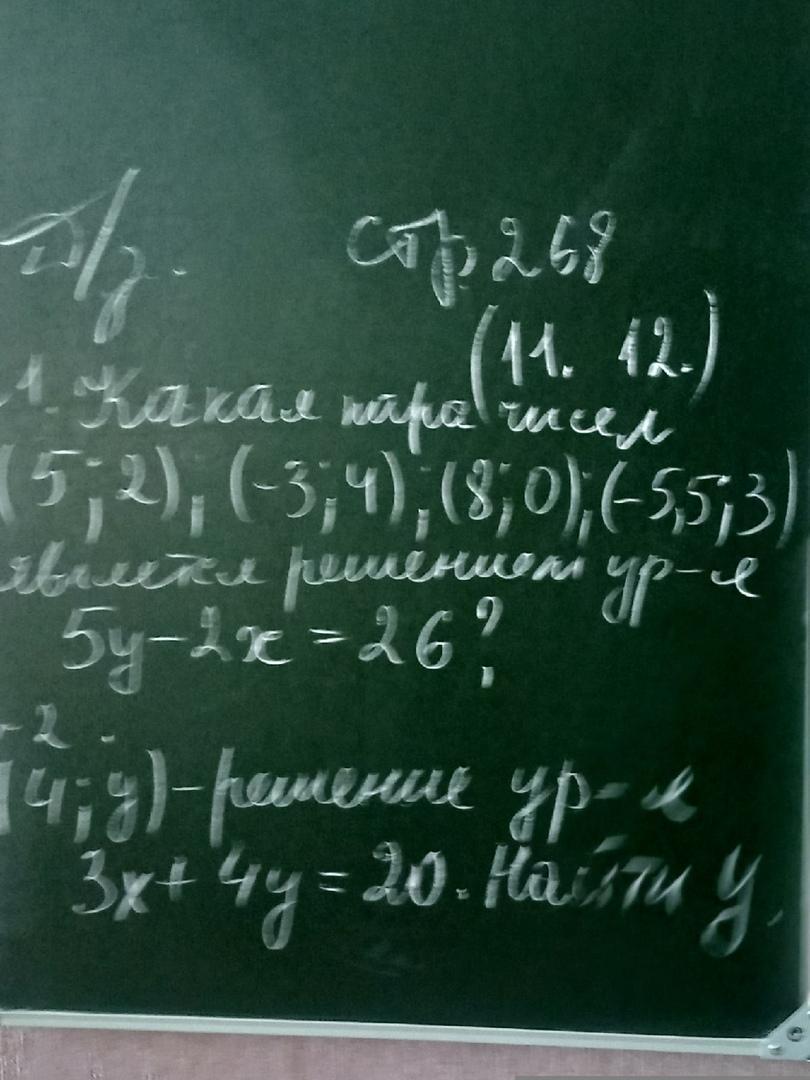 Д/з. стр 268
(11. 12.)
1. Какая пара чисел
(5; 2); (-3; 4); (8; 0); (-5,5; 3)
является решением ур-е
5y - 2x = 26?
2.
(4; y) - решение ур-е
3x + 4y = 20. Найти y.